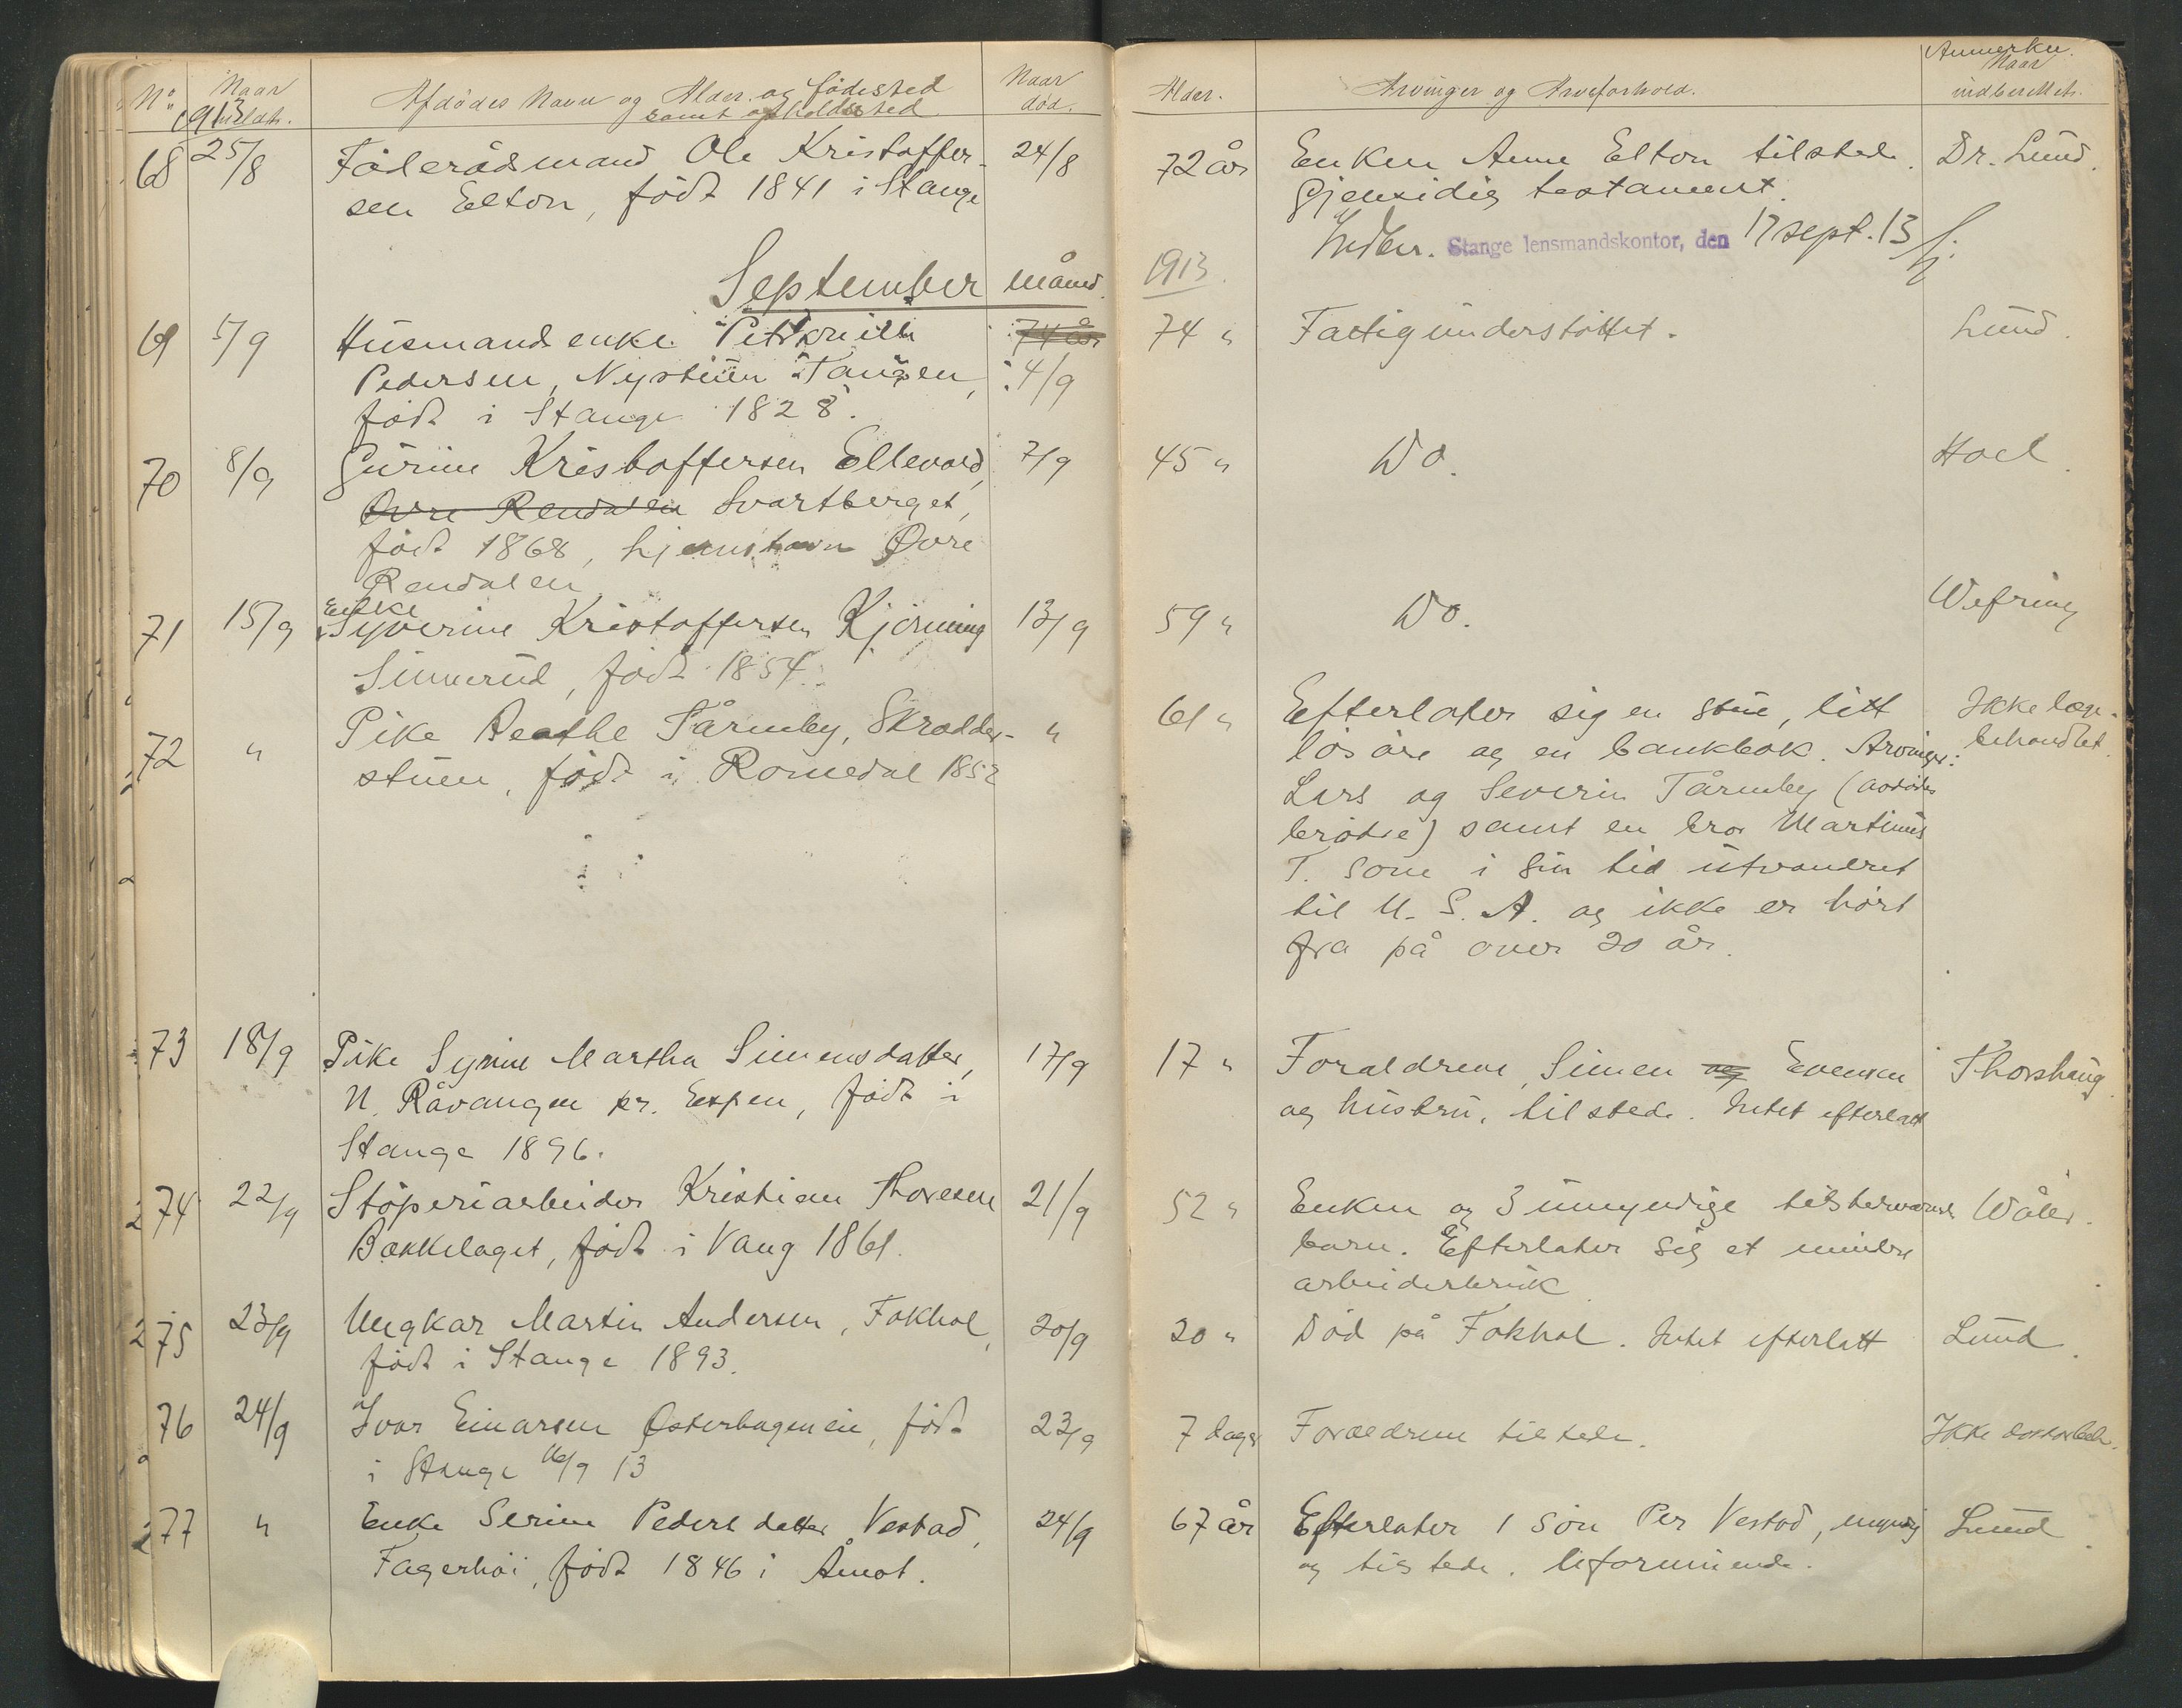 No
Naar
1913 meldt.
Afdødes Navn og Alder og fødested
samt opholdssted
Naar
død.
68 25/8 Føderådsmand Ole Kristoffer- 24/8
sen Elton, født 1841 i Stange
September måned
69 5/9 Husmandsenke Pernille 74 år
Pedersen, Nystuen i Tangen, 4/9
født i Stange 1828.
70 8/9 Gurine Kristoffersen Ellevold, 7/9
Øvre Rendalen Svartberget,
født 1868, hjemstavn Øvre
Rendalen
Enke
71 15/9 Syverine Kristoffersen Kjerning 13/9
Sinnerud, født 1854.
72 " Pike Beathe Tårmby, Skrædder- "
stuen, født i Romedal 1852
73 18/9 Pike Syrine Martha Simensdatter, 17/9
N. Råvangen pr. Espen, født i
Stange 1896.
274 22/9 Støperiarbeider Kristian Thoresen 21/9
Bækkelaget, født i Vang 1861.
275 23/9 Ungkar Martin Andersen, Fokhol, 20/9
født i Stange 1893.
76 24/9 Ivar Einarsen Østerhageneie, født 23/9
i Stange 16/9 13
277 " Enke Serine Pedersdatter Vestad, 24/9
Fagerhøi, født 1846 i Åmot.
Alder.
Arvinger og Arveforhold.
Anmerkn.
Naar
indberettet.
72 år Enken Anne Elton tilstede. Dr. Lund.
Gjensidig testament.
Indber. Stange lensmandskontor, den 17 sept. 13
1913.
74 " Fattigunderstøttet. Lund.
45 " Do. Hoel.
59 " Do. Wefring
61 " Efterlater sig en stue, litt Ikke læge-
løsøre og en bankbok. Arvinger: behandlet.
Lars og Severin Tårmby (avdødes
brødre) samt en bror Martinus
T. som i sin tid utvandret
til U. S. A. og ikke er hørt
fra på over 20 år.
17 " Forældrene, Simen og Evensen Thorshaug
og hustru, tilstede. Intet efterlatt
52 " Enken og 3 umyndige tilstedeværende Wåler.
barn. Efterlater sig et mindre
arbeiderbruk
20 " Død på Fokhol. Intet efterlatt Lund.
7 dager Forældrene tilstede. Ikke doktorbeh.
67 år Efterlater 1 søn Per Vestad, myndig Lund.
og tilstede. Uformuende.